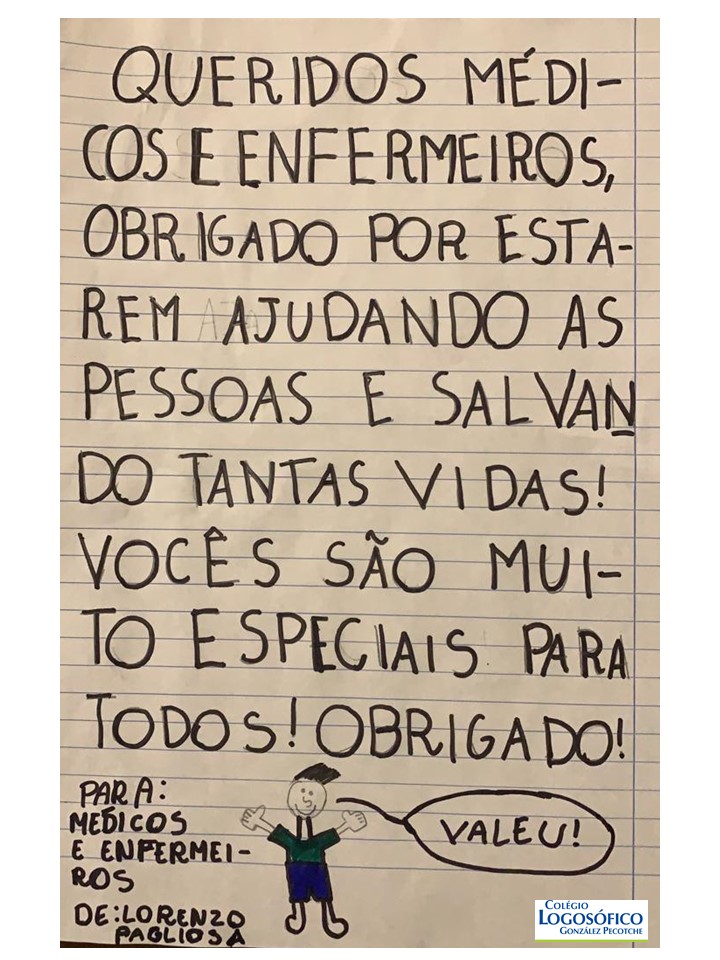 QUERIDOS MÉDI-
COS E ENFERMEIROS,
OBRIGADO POR ESTA-
REM AJUDANDO AS
PESSOAS E SALVAN
DO TANTAS VIDAS!
VOCÊS SÃO MUI-
TO ESPECIAIS PARA
TODOS! OBRIGADO!
PARA:
MÉDICOS
E ENFERMEI-
ROS
DE: LORENZO
PAGLIOSA
VALEU!
COLÉGIO
LOGOSÓFICO
GONZÁLEZ PECOTCHE